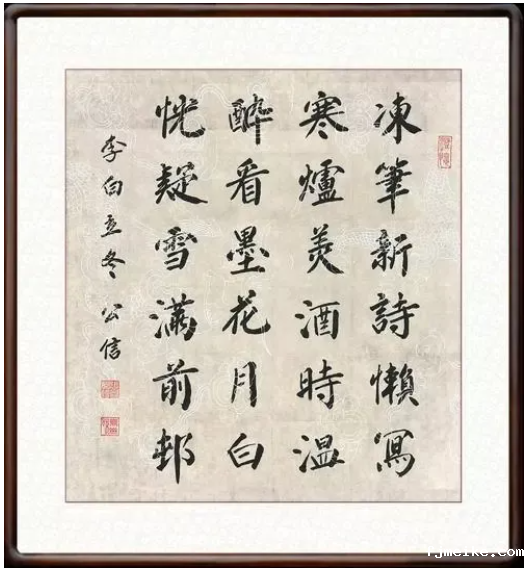 凍筆新詩懶寫
寒爐美酒時温
醉看墨花月白
恍疑雪滿前邨
李白立冬 公信
rjmeike.com